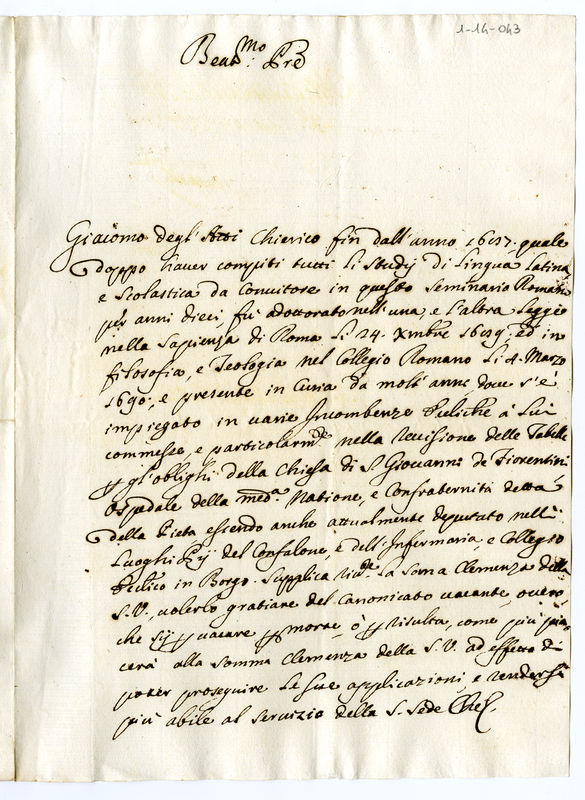 1-14-043
Beat.mo Pre
Giacomo degl' Atti Chierico fin dall' anno 1687. quale
doppo hauer compiti tutti li studij di lingua latina,
e scolastica da Conuitore in questo Seminario Romano
per anni dieci, fù adottorato nell' una, e l'altra legge
nella Sapienza di Roma li 24. Xmbre 1689, ed in
filosofia, e Teologia nel Collegio Romano li 4. Marzo
1690; e presente in Curia da molt' anni doue s'è
impiegato in uarie Incombenze Ecclicche à lui
commesse, e particolarm.te nella reuisione delle Tabelle
p gl'oblighi della Chiesa di S. Giouanni de Fiorentini
Ospedale della med.a Natione, e Confraternità detta
della Pietà essendo anche attualmente deputato nelli
Luoghi Pij del Confalone, e dell' Infermaria e Collegio
Ecclico in Borgo. Supplica riu.te la som̃a Clemenza della
S. V. uolerlo gratiare del Canonicato uacante, ouero
che sij p uacare p morte, ò p risulta, come più pia-
cerà alla somma Clemenza della S. V. ad effetto di
poter proseguire le sue applicazioni, e rendersi
più abile al seruizio della S. Sede Che